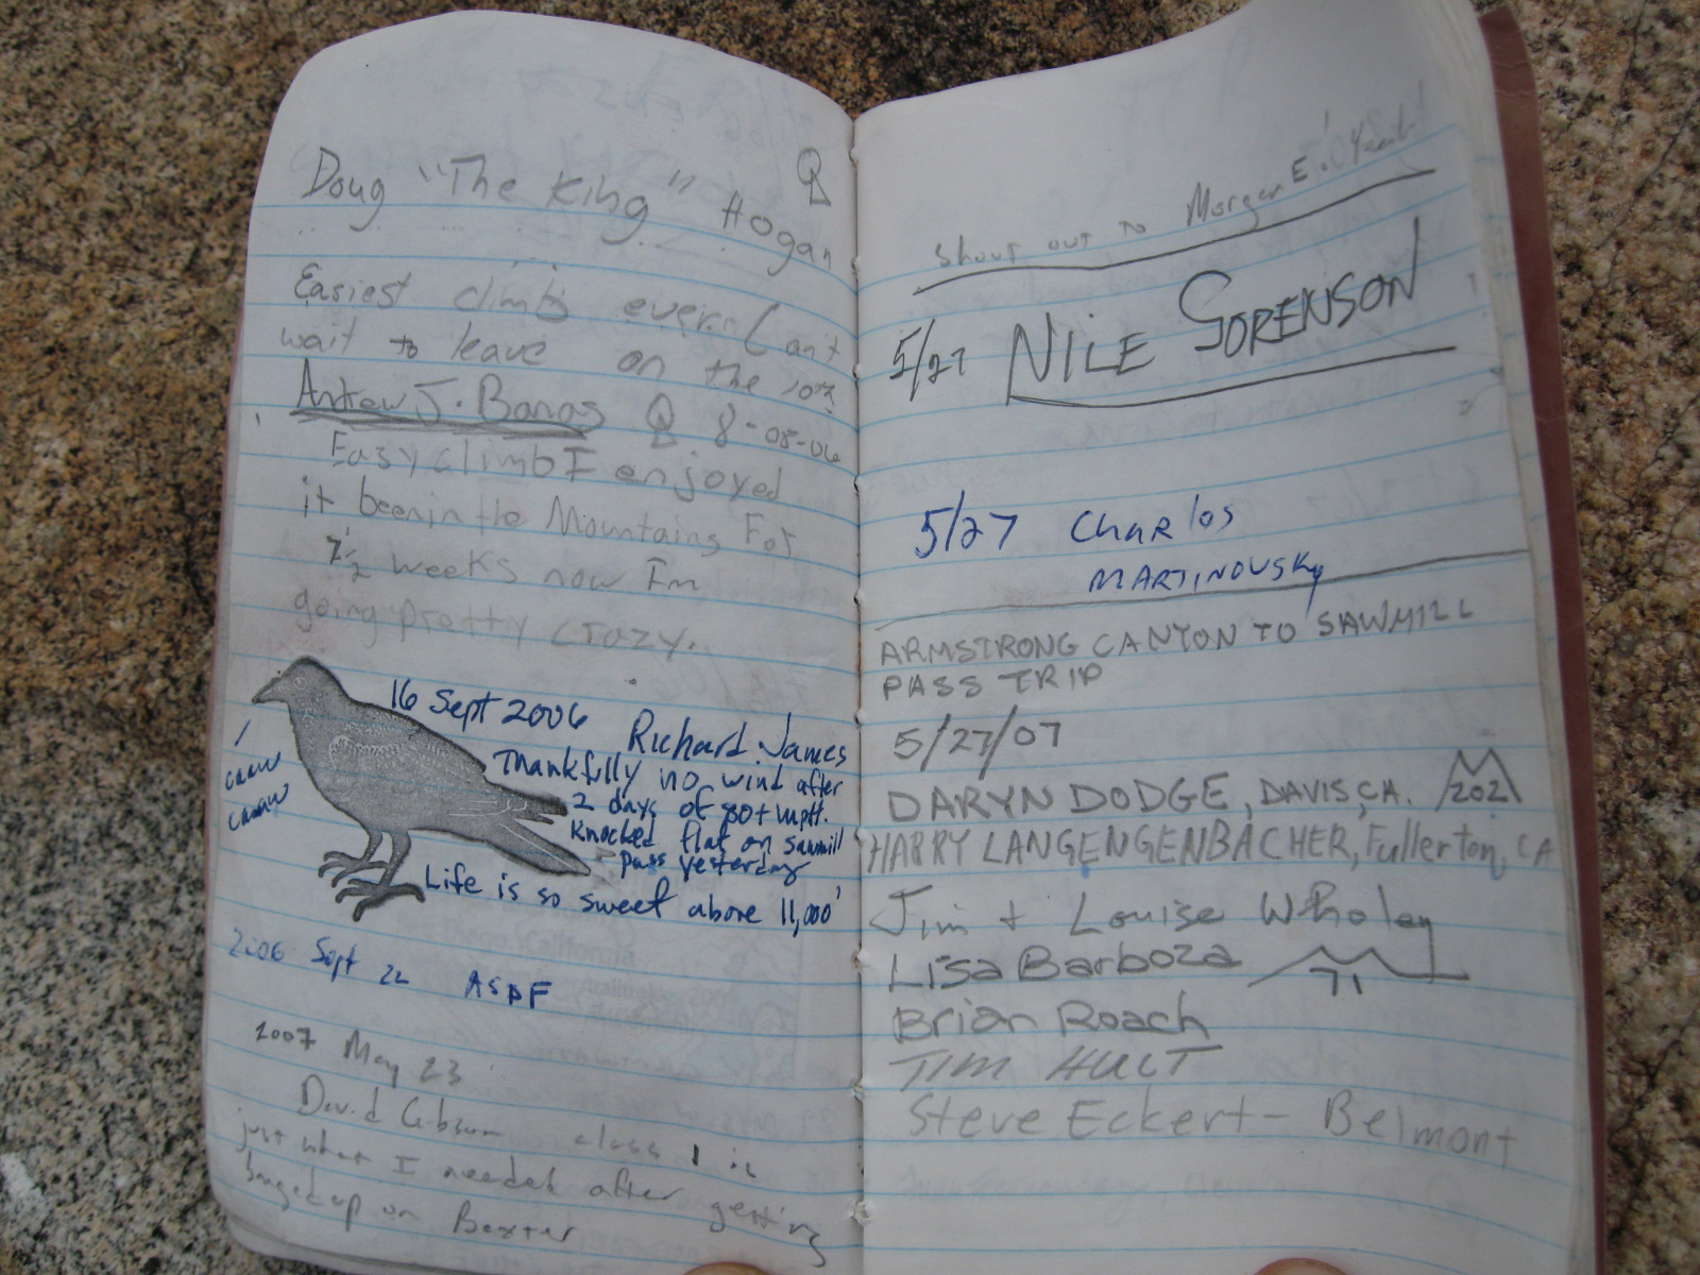 Doug "The King" Hogan
Easiest climb ever. Can't
wait to leave on the 10th.
Andrew J. Banas 8-08-06
Easy climb I enjoyed
it been in the Mountains For
7 1/2 weeks now Im
going pretty crazy.
16 Sept 2006 Richard James
Thankfully no wind after
2 days of 80+ mph.
Knocked flat on sawmill
pass yesterday
Life is so sweet above 11,000'
caaw
caaaw
2006 Sept 22 ASPF
2007 May 23
David Gibson class 1 is
just what I needed after getting
banged up on Baxter
Shout out to Morgan E.! Yeah!
5/27 NILE SORENSON
5/27 Charlos
MARTINOVSKy
ARMSTRONG CANYON TO SAWMILL
PASS TRIP
5/27/07
DARYN DODGE, DAVIS, CA. 202
HARRY LANGENGENBACHER, Fullerton, CA
Jim + Louise Wholey
Lisa Barboza 71
Brian Roach
TIM HULT
Steve Eckert - Belmont